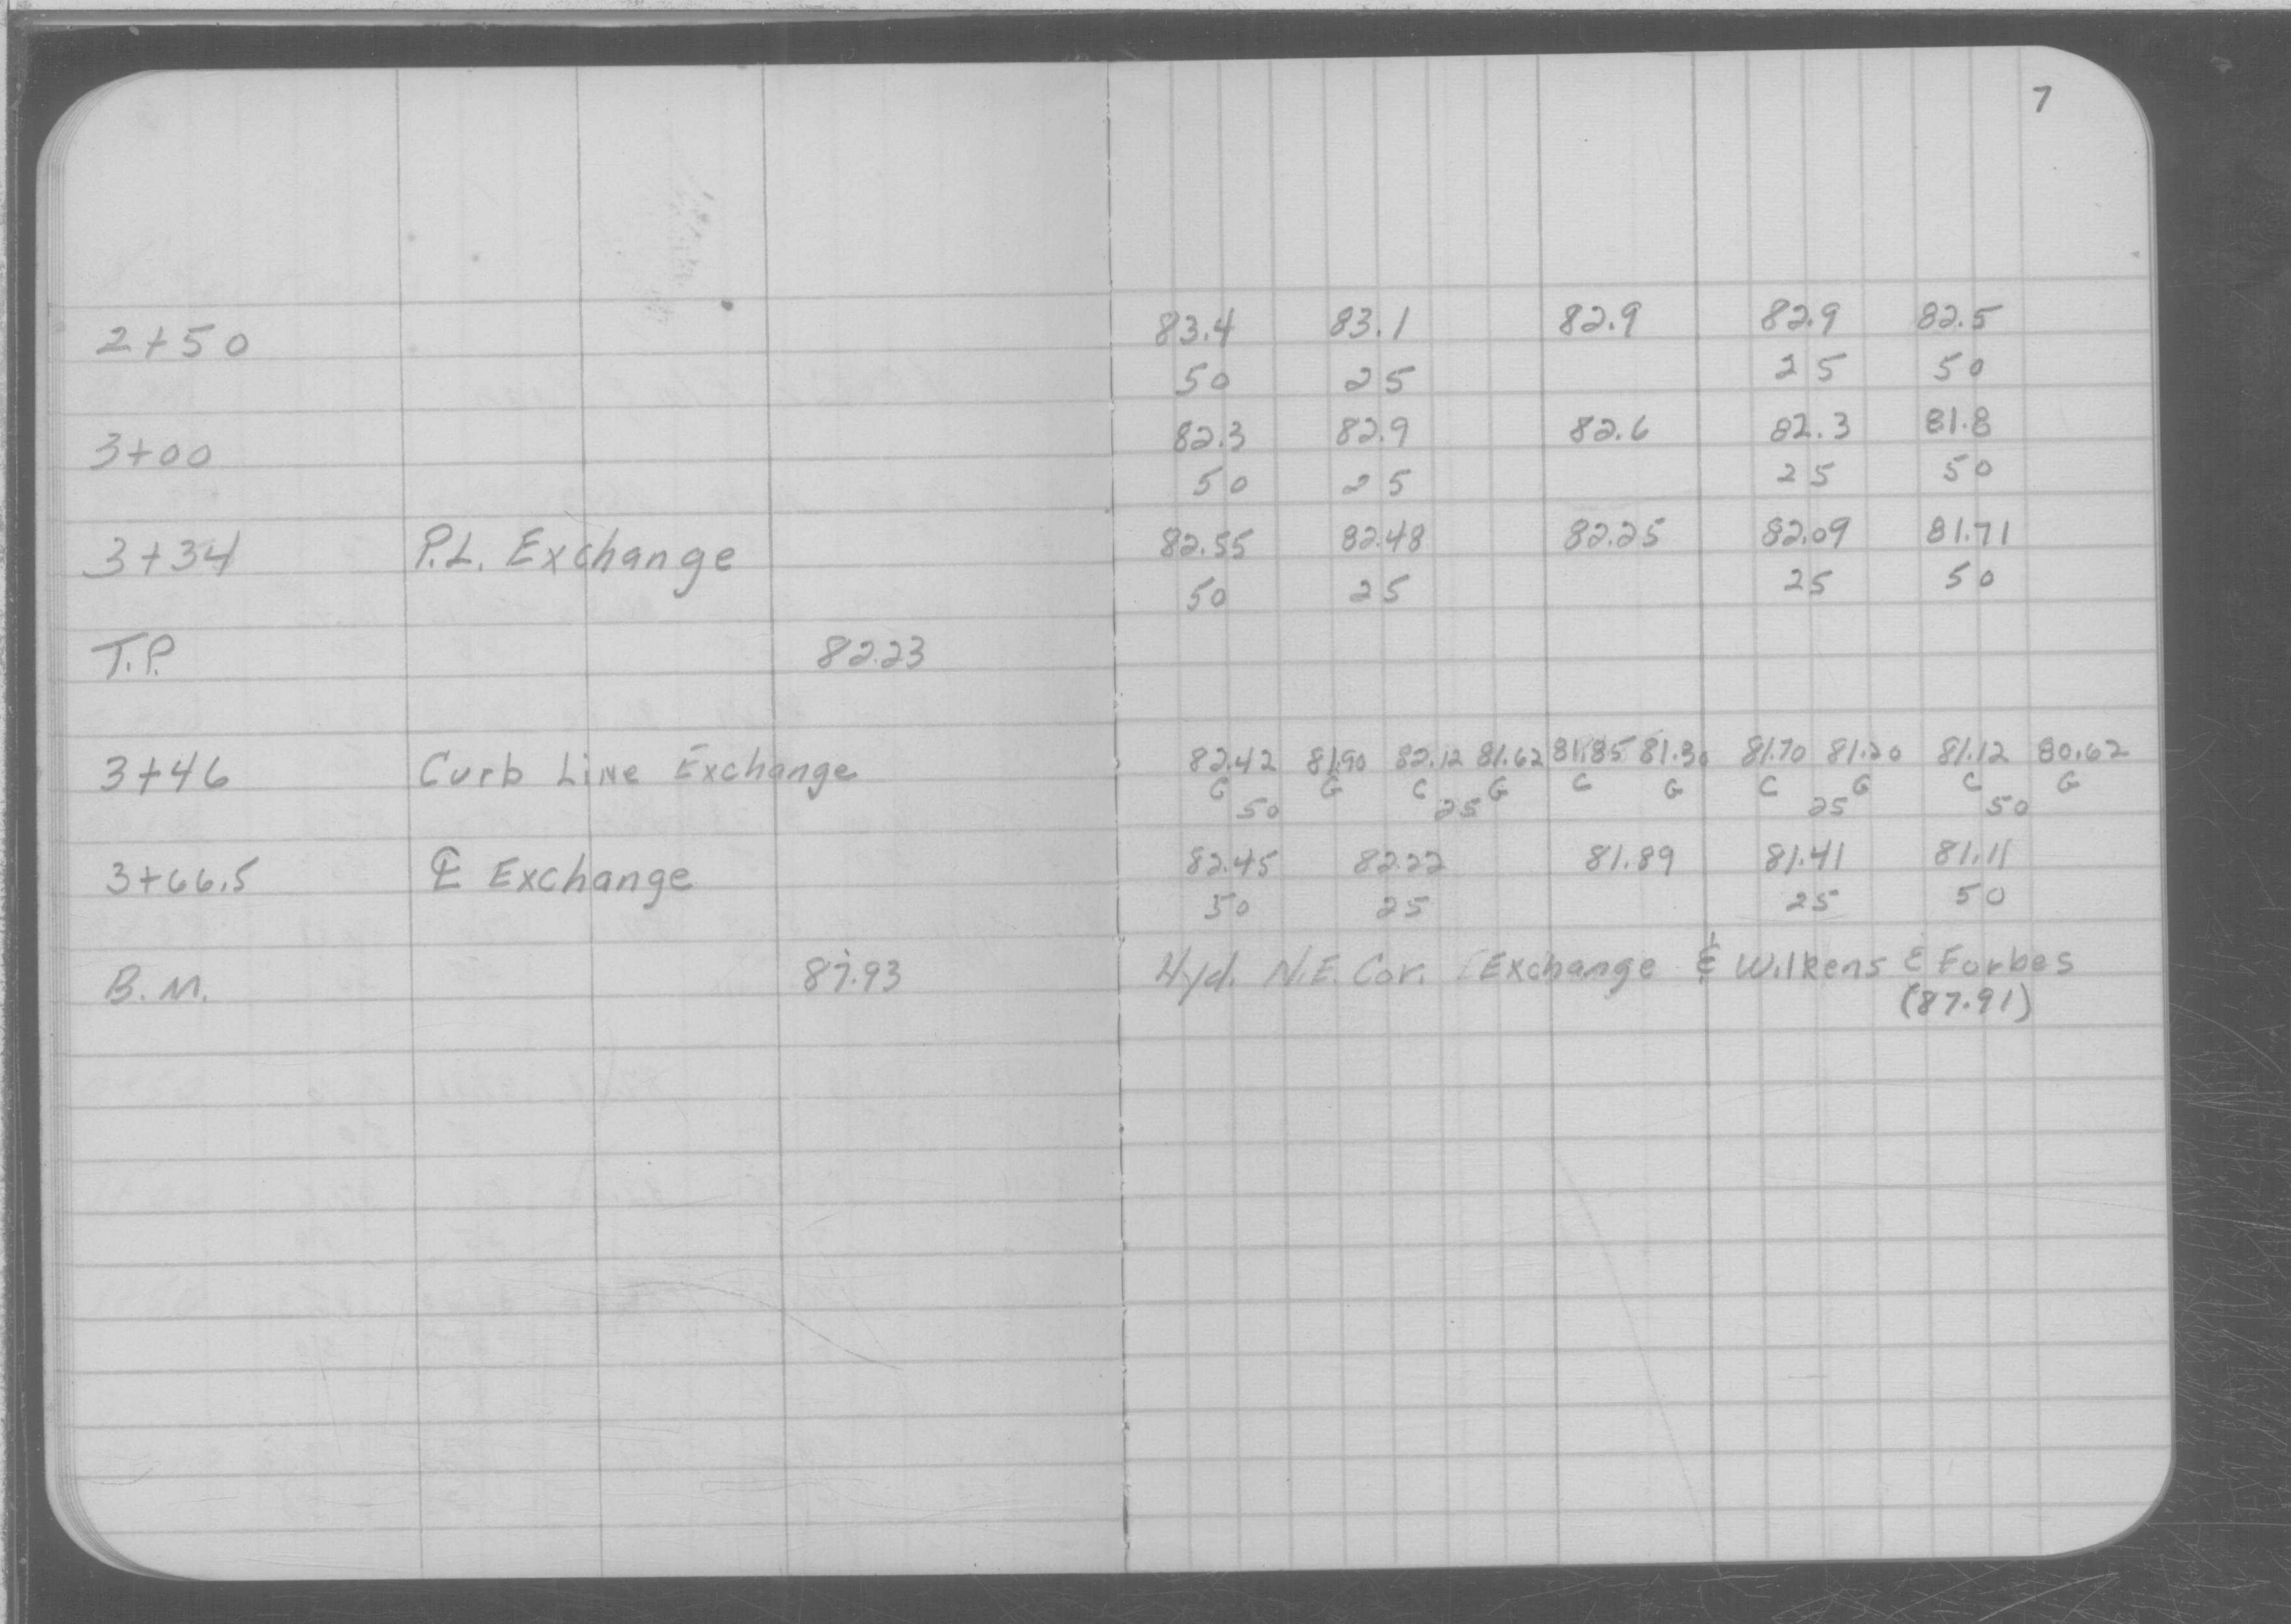 7
2+50 83.4 83.1 82.9 82.9 82.5
50 25 25 50
3+00 82.3 82.9 82.6 82.3 81.8
50 25 25 50
3+34 P.L. Exchange 82.55 82.48 82.25 82.09 81.71
50 25 25 50
T.P. 82.23
3+46 Curb Line Exchange 82.42 81.90 82.12 81.62 81.85 81.30 81.70 81.20 81.12 80.62
C G C G C G C G C G
50 25 25 50
3+66.5 ℄ Exchange 82.45 82.22 81.89 81.41 81.11
50 25 25 50
B.M. 87.93 Hyd. N.E. Cor. Exchange & Wilkens & Forbes
(87.91)